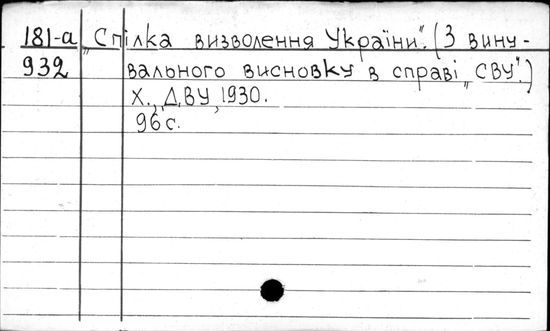 181-а „Спілка визволення України". (З вину-
932 вального висновку в справі „СВУ".)
Х., ДВУ, 1930.
96 с.